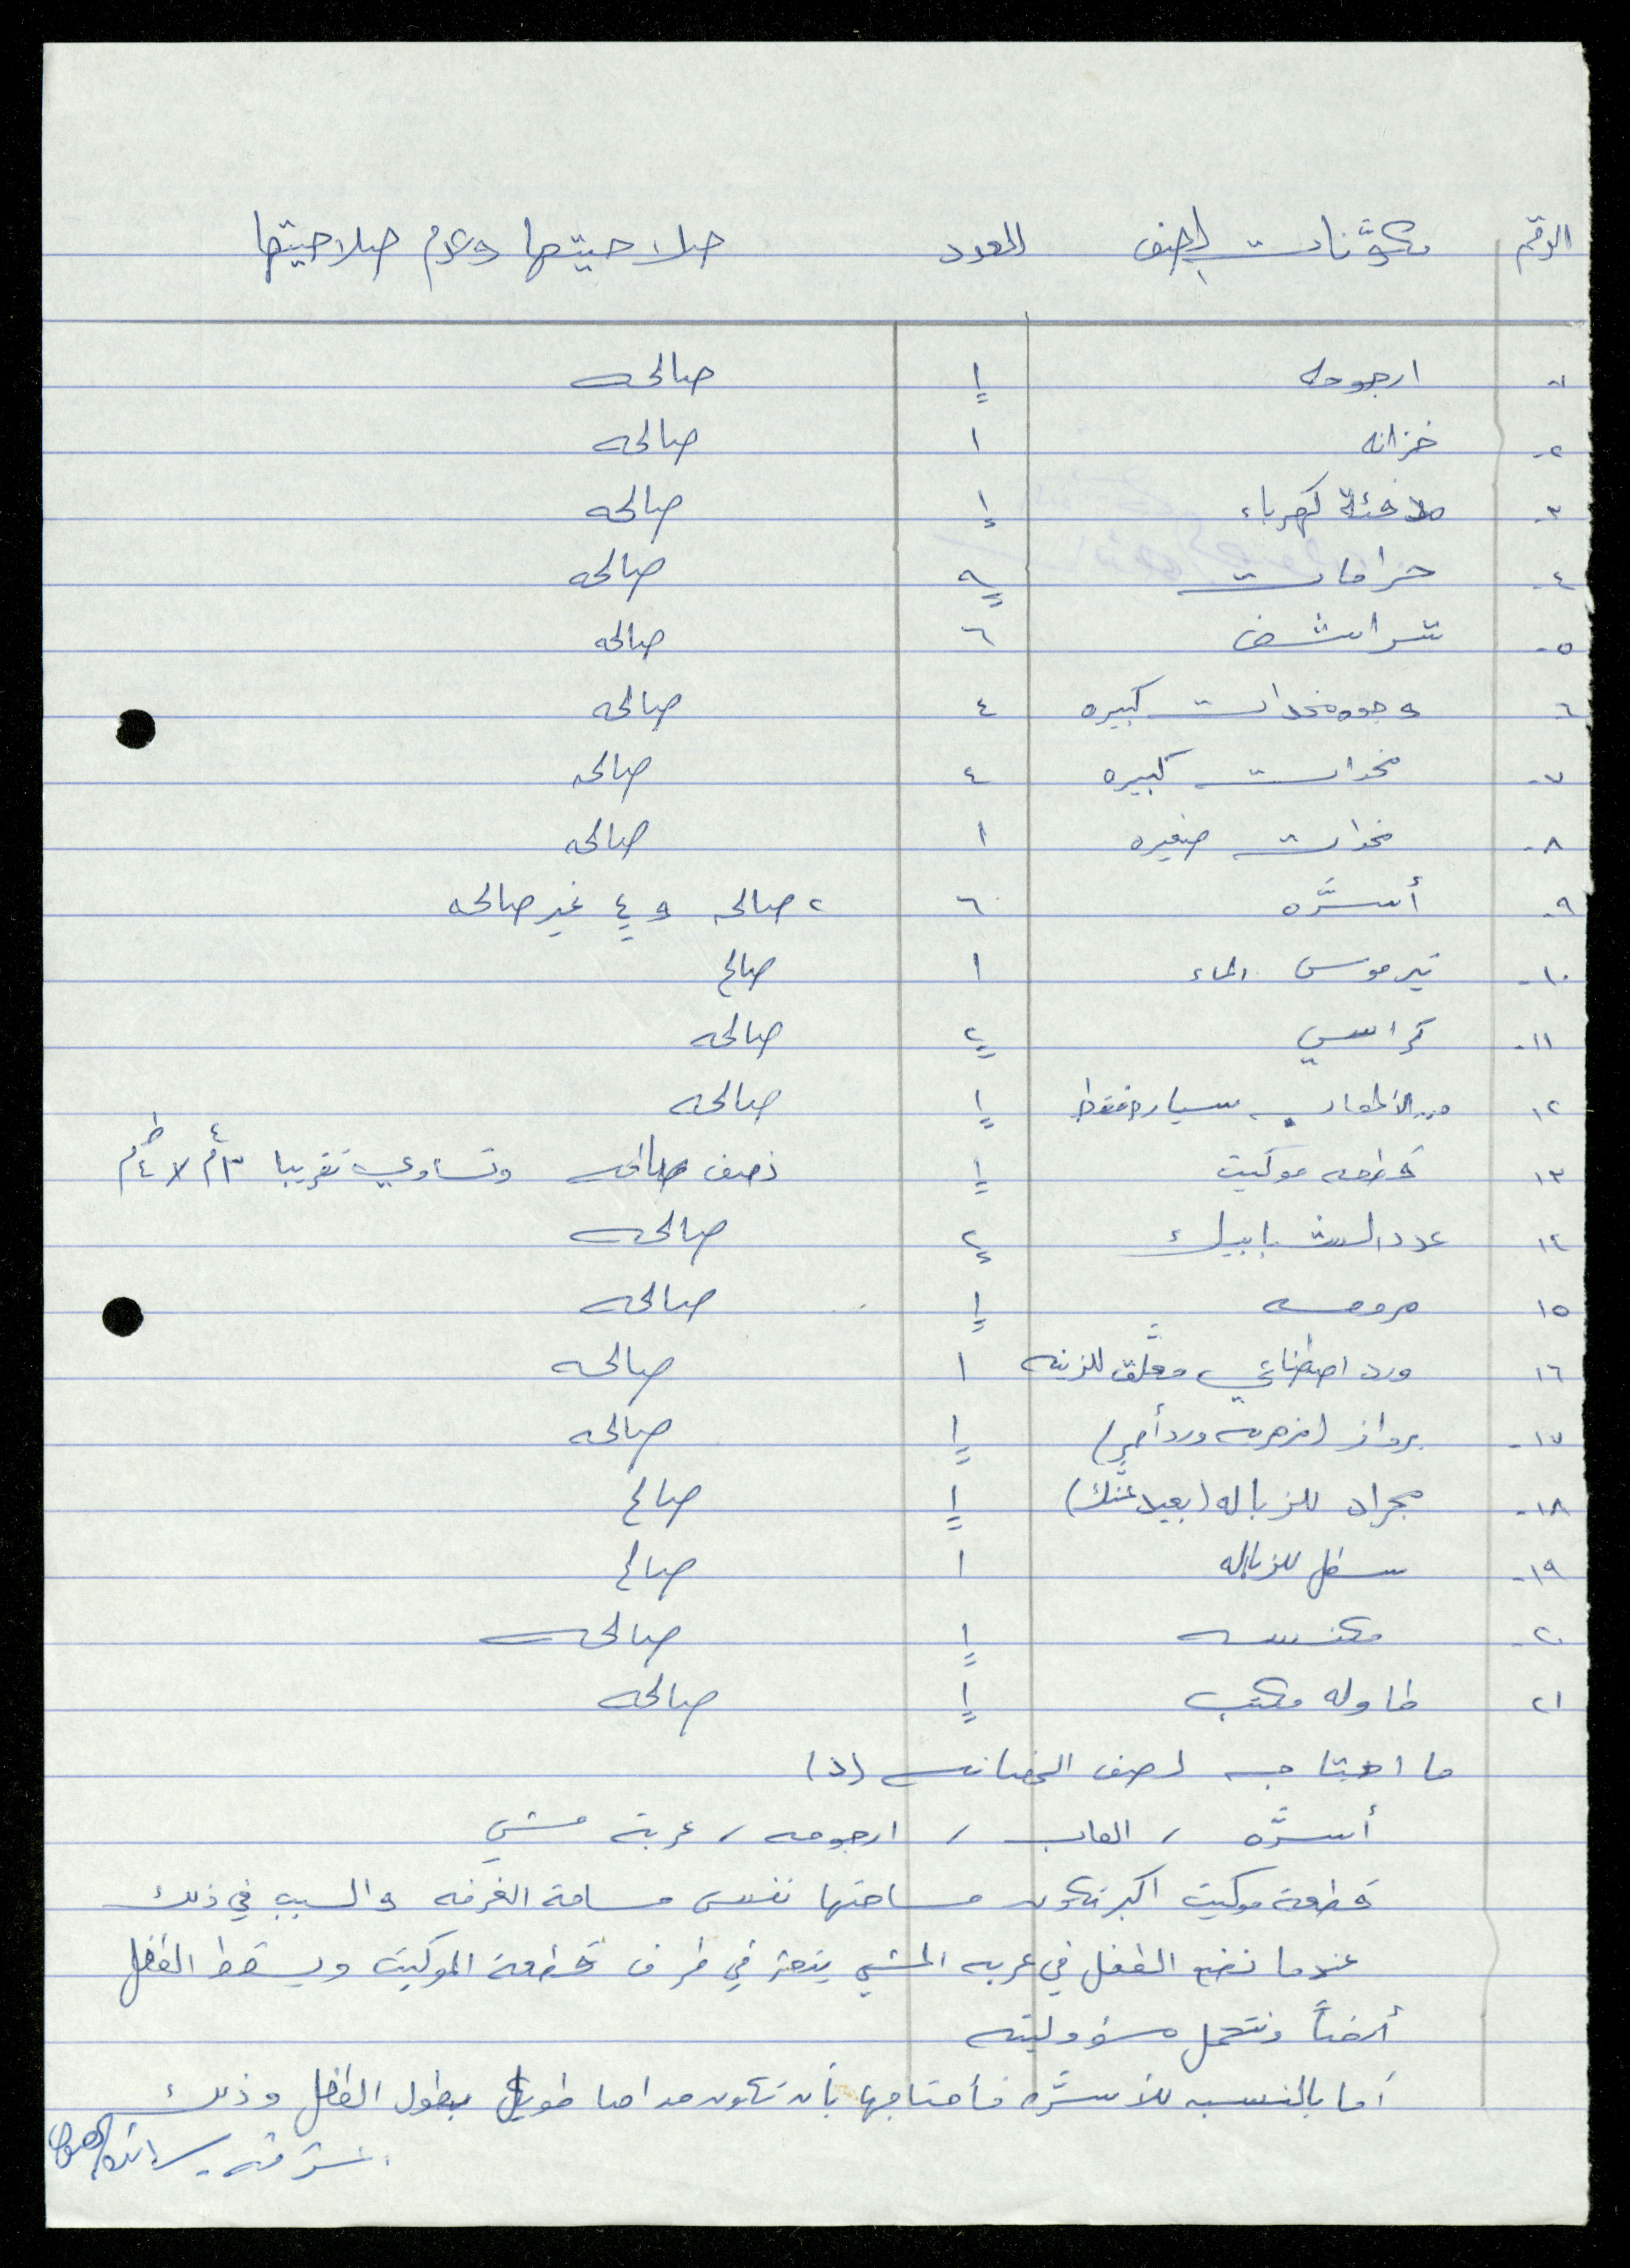 الرقم مكوّنات الصف العدد صلاحيتها وعدم صلاحيتها
١- ارجوحه ١ صالحه
٢- خزانه ١ صالحه
٣- مدفئة كهرباء ١ صالحه
٤- حرامات ٩ صالحه
٥- شراشف ٦ صالحه
٦- وجوه مخدات كبيره ٤ صالحه
٧- مخدات كبيره ٤ صالحه
٨- مخدات صغيره ١ صالحه
٩- أسرَّه ٦ ٢ صالحه و ٤ غير صالحه
١٠- تيرموس الماء ١ صالح
١١- كراسي ٢ صالحه
١٢ من الالعاب سياره فقط ١ صالحه
١٣ قطعه موكيت ١ نصف صالحه وتساوي تقريبا ٣م × ٤م
١٤ عدد الشبابيك ٢ صالحه
١٥ مروحه ١ صالحه
١٦ ورد اصطناعي معلَّق للزينه ١ صالحه
١٧- برواز (مزهريه ورد أحمر) ١ صالحه
١٨- مجراد للزباله (بعيد عنَّك) ١ صالح
١٩- سطل للزباله ١ صالح
٢٠- مكنسه ١ صالحه
٢١ طاوله مكتب ١ صالحه
ما احتاجه لصف الحضانه (د)
أسرَّه ، العاب ، ارجوحه ، عربة مشي
قطعة موكيت اكبر تكون مساحتها نفس مساحة الغرفه والسبب في ذلك
عندما نضع الطفل في عربه المشي يتعثر في طرف قطعة الموكيت ويسقط الطفل
أرضاً ونتحمل مسؤوليته
أما بالنسبه للأسرَّه فأحتاجها بأن تكون مداها طويل بطول الطفل وذلك